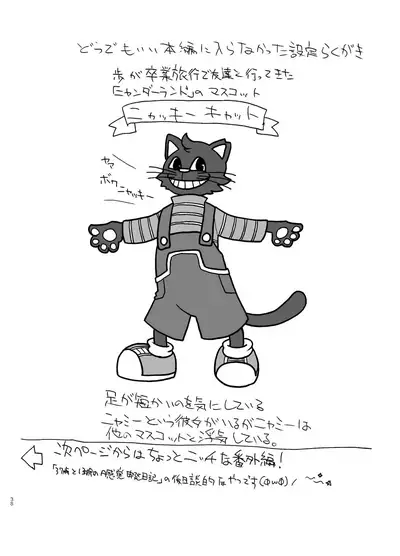 どうでもいい本編に入らなかった設定らくがき
歩が卒業旅行で友達と行ってきた
「ニャンダーランド」のマスコット
ニャッキー キャット
ヤア
ボク
ニャッキー
足が短かいのを気にしている
ニャミーという彼女がいるがニャミーは
他のマスコットと浮気している。
次ページからはちょっとニッチな番外編!
日記」の後日談的なやつです(ΦωΦ)
38